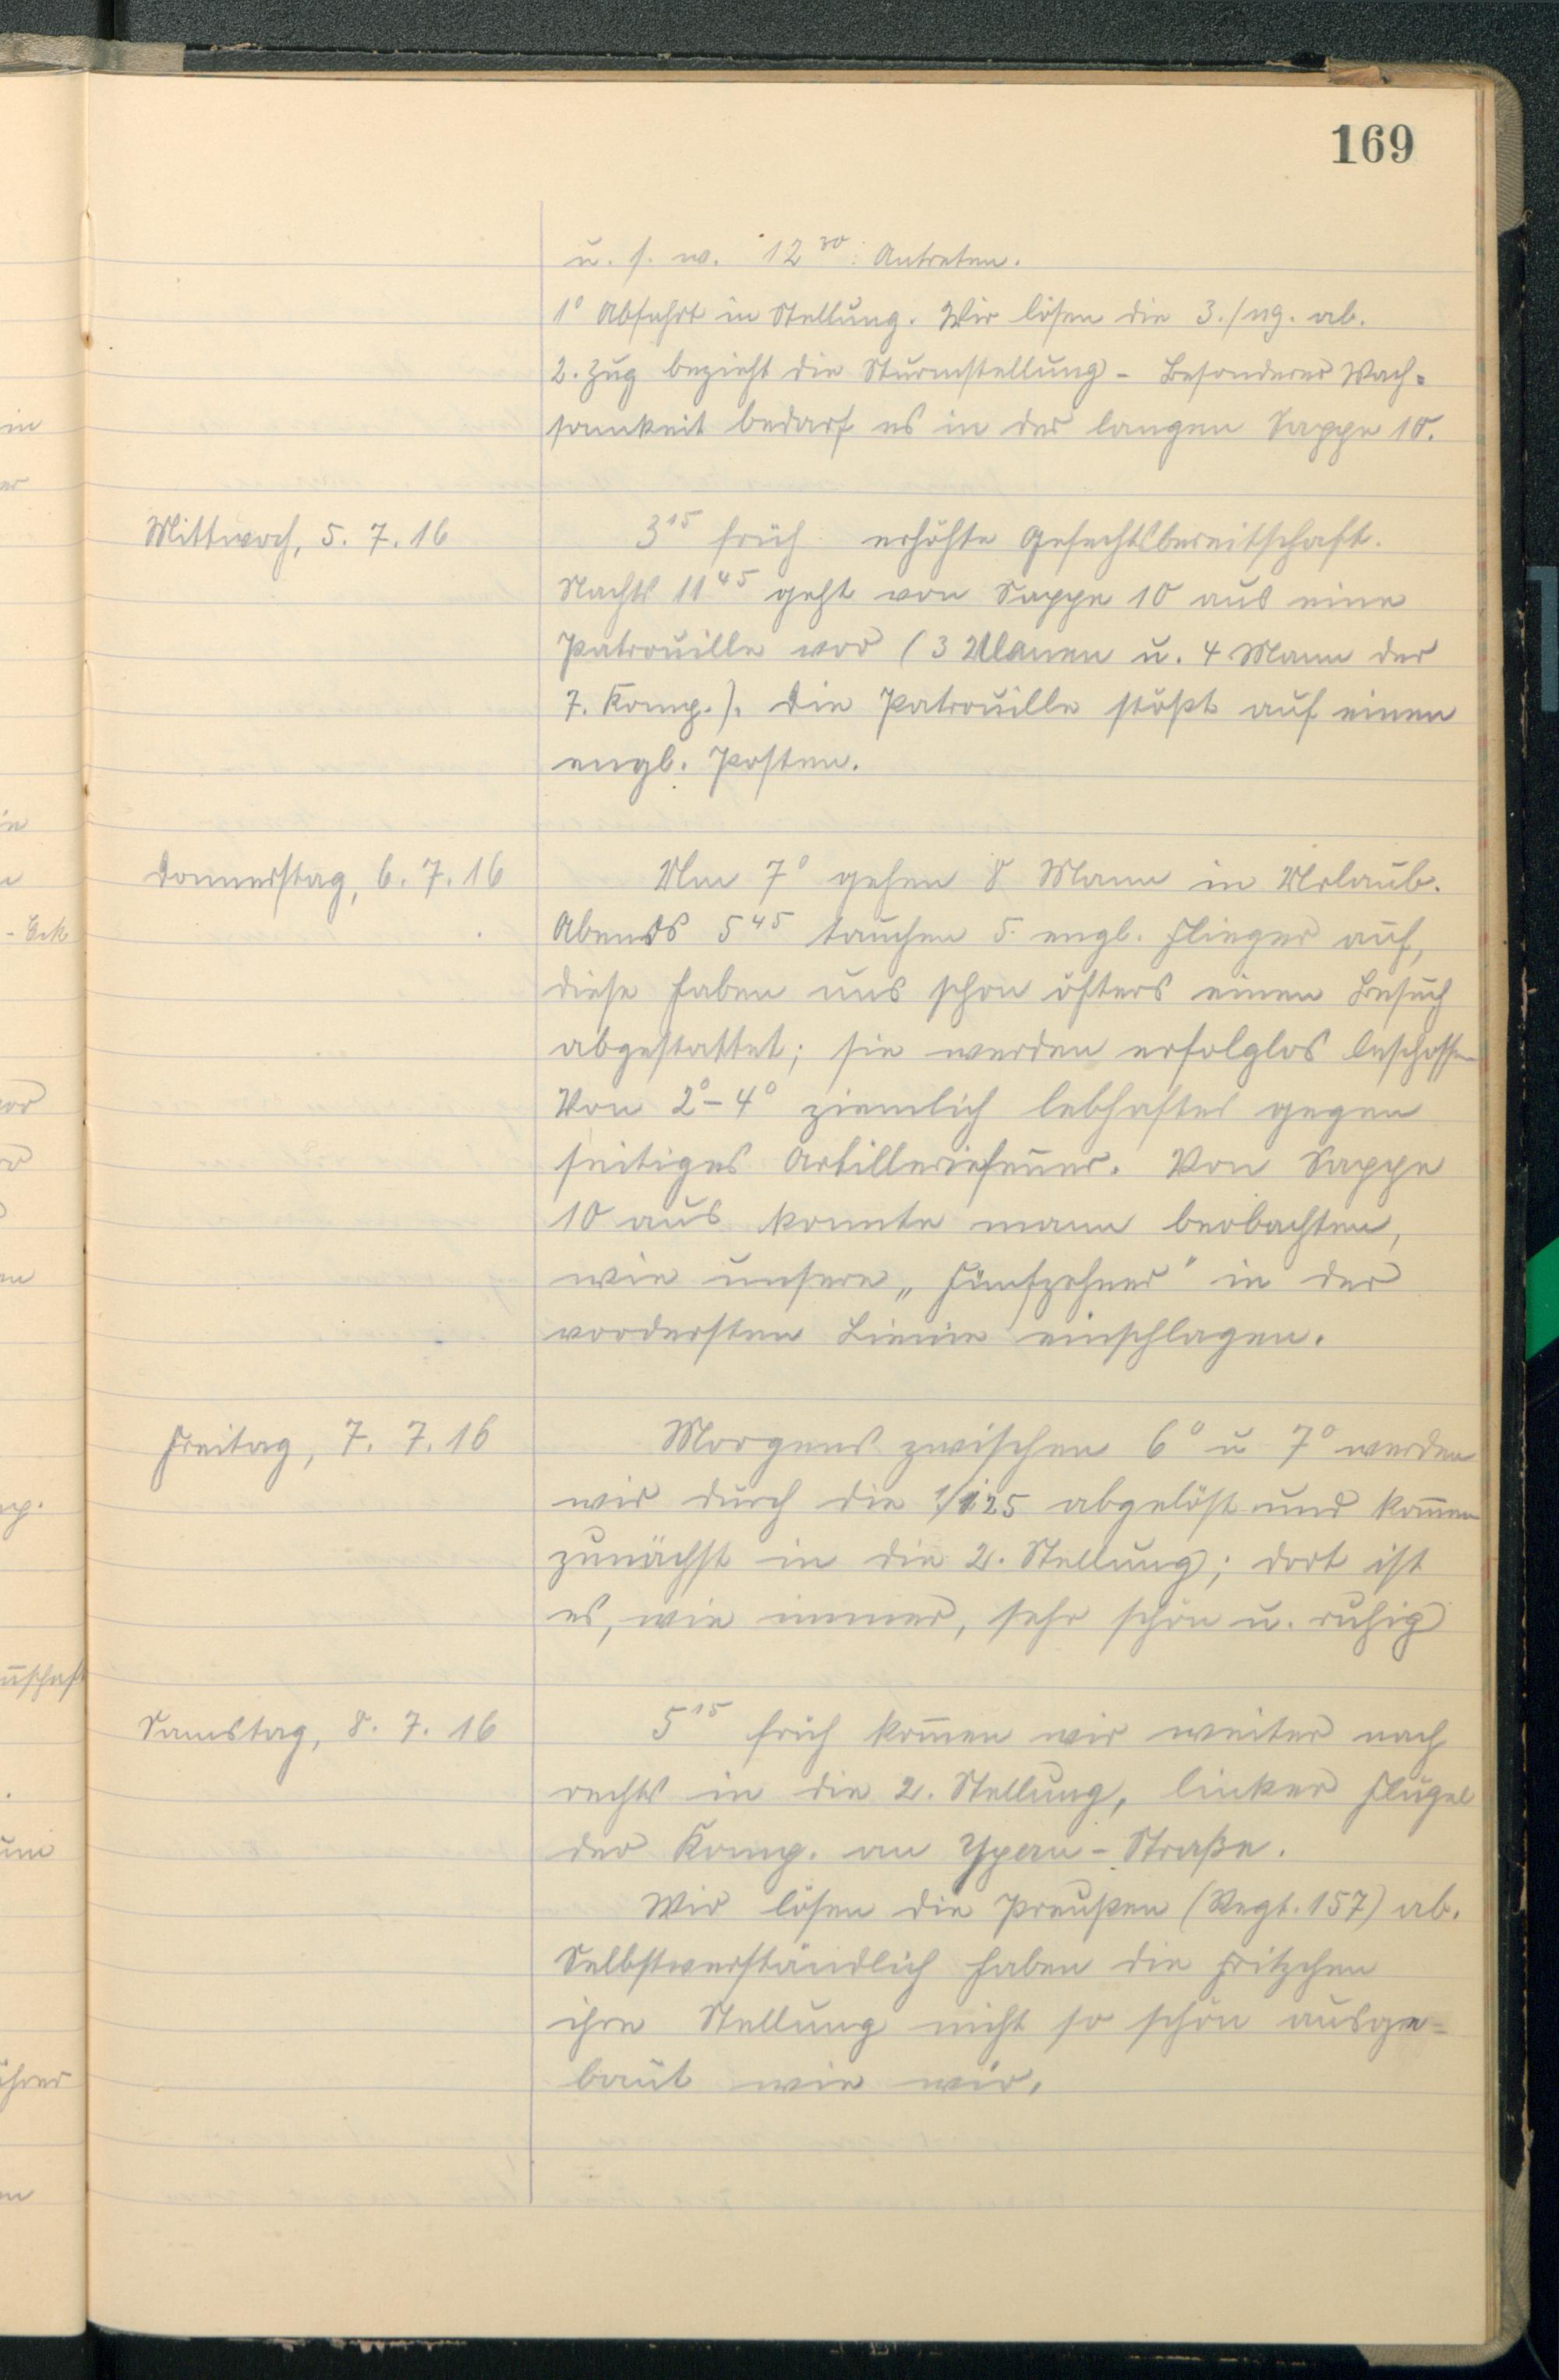 169
u. s. w. 12³⁰: Antreten.
1⁰ Abfahrt in Stellung. Wir lösen die 3./119. ab.
2. Zug bezieht die Sturmstellung - Besonderer Wach=
samkeit bedarf es in der langen Sappe 10.
Mittwoch, 5. 7. 16
3¹⁵ früh erhöhte Gefechtsbereitschaft.
Nachts 11⁴⁵ geht von Sappe 10 aus eine
Patrouille vor (3 Ulanen u. 4 Mann der
7. Komp.). Die Patrouille stößt auf einen
engl. Posten.
Donnerstag, 6. 7. 16
Um 7⁰ gehen 8 Mann in Urlaub.
Abends 5⁴⁵ tauchen 5 engl. Flieger auf,
diese haben uns schon öfters einen Besuch
abgestattet; sie werden erfolglos beschossen
Von 2⁰ - 4⁰ ziemlich lebhaftes gegen
seitiges Artilleriefeuer. Von Sappe
10 aus konnte mann beobachten,
wie unsere „Fünfzehner" in der
vordersten Linie einschlagen.
Freitag, 7. 7. 16
Morgens zwischen 6⁰ u 7⁰ werden
wir durch die 1/125 abgelöst und kom̄en
zunächst in die 2. Stellung; dort ist
es, wie immer, sehr schön u. ruhig
Samstag, 8. 7. 16
5¹⁵ früh kom̄en wir weiter nach
rechts in die 2. Stellung, linker Flügel
der Komp. an Ypern-Straße.
Wir lösen die Preußen (Regt. 157) ab.
Selbstverständlich haben die Fritzchen
ihre Stellung nicht so schön ausge=
baut wie wir.